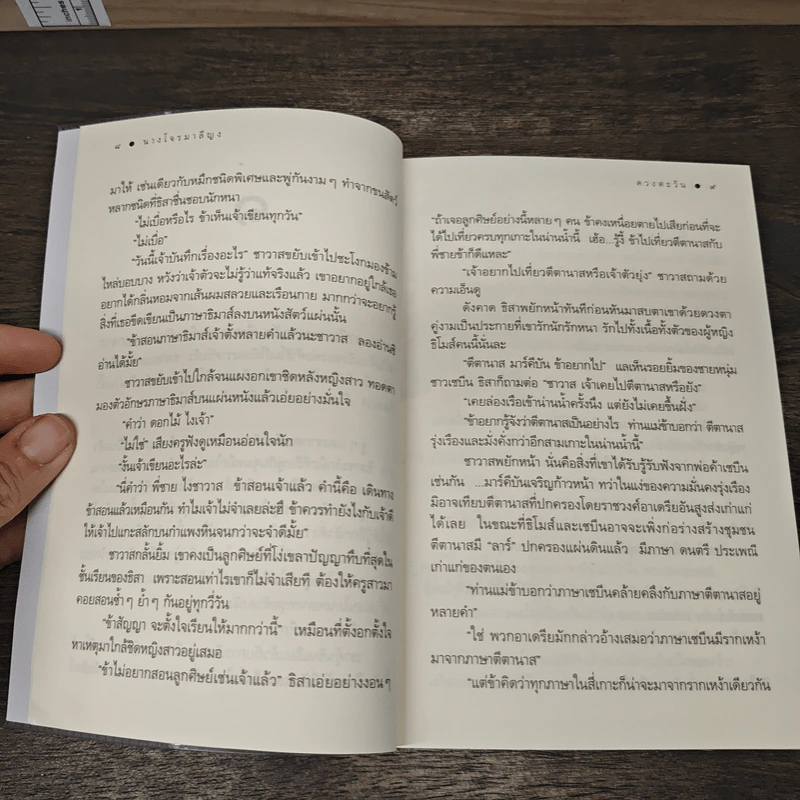 inches 1
๘ ● นางโจรมาลีญง
มาให้ เช่นเดียวกับหมึกชนิดพิเศษและพู่กันงาม ๆ ทำจากขนสัตว์
หลากชนิดที่ธิสาชื่นชอบนักหนา
"ไม่เบื่อหรือไร ข้าเห็นเจ้าเขียนทุกวัน"
"ไม่เบื่อ"
"วันนี้เจ้าบันทึกเรื่องอะไร" ชาวาสขยับเข้าไปชะโงกมองข้าม
ไหล่บอบบาง หวังว่าเจ้าตัวจะไม่รู้ว่าแท้จริงแล้ว เขาอยากอยู่ใกล้เธอ
อยากได้กลิ่นหอมจากเส้นผมสลวยและเรือนกาย มากกว่าจะอยากรู้
สิ่งที่เธอขีดเขียนเป็นภาษาธิมาส์ลงบนหนังสัตว์แผ่นนั้น
"ข้าสอนภาษาธิมาส์เจ้าตั้งหลายคำแล้วนะชาวาส ลองอ่านซิ
อ่านได้มั้ย"
ชาวาสขยับเข้าไปใกล้จนแผงอกเขาชิดหลังหญิงสาว ทอดตา
มองตัวอักษรภาษาธิมาส์บนแผ่นหนังแล้วเอ่ยอย่างมั่นใจ
"คำว่า ดอกไม้ ไงเจ้า"
"ไม่ใช่" เสียงครูฟังดูเหมือนอ่อนใจนัก
"งั้นเจ้าเขียนอะไรล่ะ"
"นี่คำว่า พี่ชาย ไงชาวาส ข้าสอนเจ้าแล้ว คำนี้คือ เดินทาง
ข้าสอนแล้วเหมือนกัน ทำไมเจ้าไม่จำเลยล่ะฮึ ข้าควรทำยังไงกับเจ้าดี
ให้เจ้าไปแกะสลักบนกำแพงหินจนกว่าจะจำดีมั้ย"
ชาวาสกลั้นยิ้ม เขาคงเป็นลูกศิษย์ที่โง่เขลาปัญญาทึบที่สุดใน
ชั้นเรียนของธิสา เพราะสอนเท่าไรเขาก็ไม่จำเสียที ต้องให้ครูสาวมา
คอยสอนซ้ำ ๆ ย้ำ ๆ กันอยู่ทุกวี่วัน
"ข้าสัญญา จะตั้งใจเรียนให้มากกว่านี้" เหมือนที่ตั้งอกตั้งใจ
หาเหตุมาใกล้ชิดหญิงสาวอยู่เสมอ
"ข้าไม่อยากสอนลูกศิษย์เช่นเจ้าแล้ว" ธิสาเอ่ยอย่างงอน ๆ
ดวงตะวัน ● ๙
"ถ้าเจอลูกศิษย์อย่างนี้หลาย ๆ คน ข้าคงเหนื่อยตายไปเสียก่อนที่จะ
ได้ไปเที่ยวครบทุกเกาะในน่านน้ำนี้ เฮ้อ...รู้งี้ ข้าไปเที่ยวตีตานาสกับ
พี่ชายข้าก็ดีแหละ"
"เจ้าอยากไปเที่ยวตีตานาสหรือเจ้าตัวยุ่ง" ชาวาสถามด้วย
ความเอ็นดู
ดังคาด ธิสาพยักหน้าทันทีก่อนหันมาสบตาเขาด้วยดวงตา
คู่งามเป็นประกายที่เขารักนักรักหนา รักไปทั้งเนื้อทั้งตัวของผู้หญิง
ธิโมส์คนนี้นั่นละ
"ตีตานาส มาร์คีบัน ข้าอยากไป" แลเห็นรอยยิ้มของชายหนุ่ม
ชาวเซบีน ธิสาก็ถามต่อ "ชาวาส เจ้าเคยไปตีตานาสหรือยัง"
"เคยล่องเรือเข้าน่านน้ำครั้งนึง แต่ยังไม่เคยขึ้นฝั่ง"
"ข้าอยากรู้จังว่าตีตานาสเป็นอย่างไร ท่านแม่ข้าบอกว่า ตีตานาส
รุ่งเรืองและมั่งคั่งกว่าอีกสามเกาะในน่านน้ำนี้"
ชาวาสพยักหน้า นั่นคือสิ่งที่เขาได้รับรู้รับฟังจากพ่อค้าเซบีน
เช่นกัน ...มาร์คีบันเจริญก้าวหน้า ทว่าในแง่ของความมั่นคงรุ่งเรือง
มิอาจเทียบตีตานาสที่ปกครองโดยราชวงศ์อาเดรียอันสูงส่งเก่าแก่
ได้เลย ในขณะที่ธิโมส์และเซบีนอาจจะเพิ่งก่อร่างสร้างชุมชน
ตีตานาสมี "ลาร์" ปกครองแผ่นดินแล้ว มีภาษา ดนตรี ประเพณี
เก่าแก่ของตนเอง
"ท่านแม่ข้าบอกว่าภาษาเซบีนคล้ายคลึงกับภาษาตีตานาสอยู่
หลายคำ"
"ใช่ พวกอาเดรียมักกล่าวอ้างเสมอว่าภาษาเซบีนมีรากเหง้า
มาจากภาษาตีตานาส"
"แต่ข้าคิดว่าทุกภาษาในสี่เกาะก็น่าจะมาจากรากเหง้าเดียวกัน